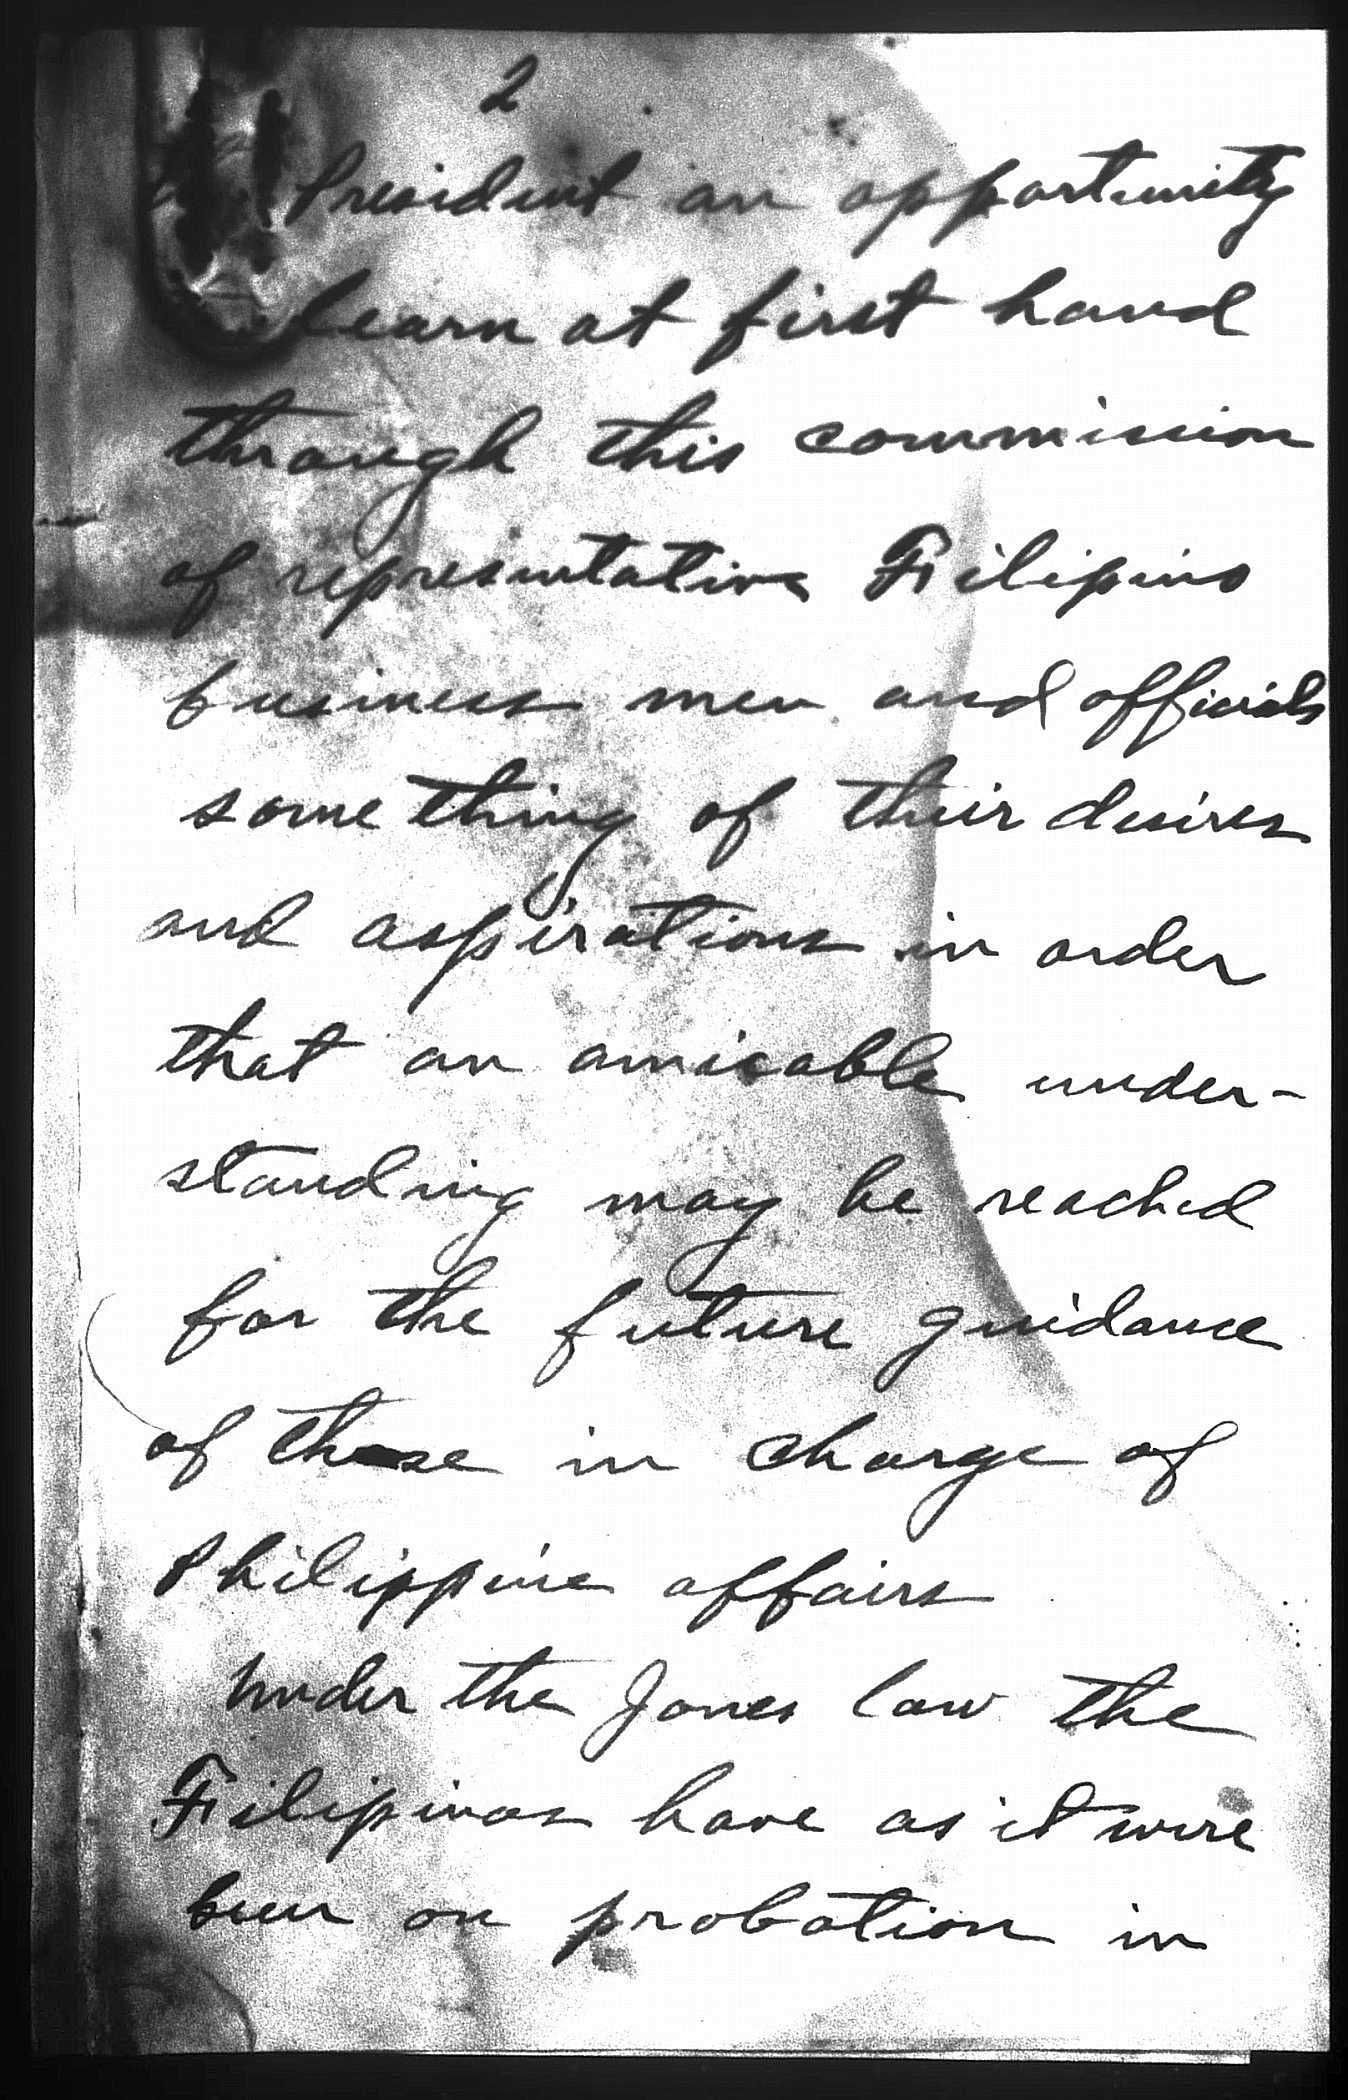 2
President an opportunity
learn at first hand
through this commission
of representative Filipino
business men and officials
something of their desires
and aspirations in order
that an amicable under-
standing may be reached
for the future guidance
of those in charge of
Philippine affairs
Under the Jones law the
Filipinos have as it were
been on probation in